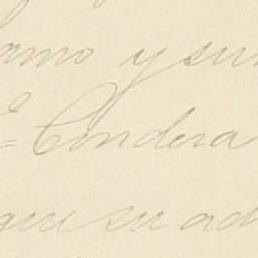 amo y su
Condesa
que su ad